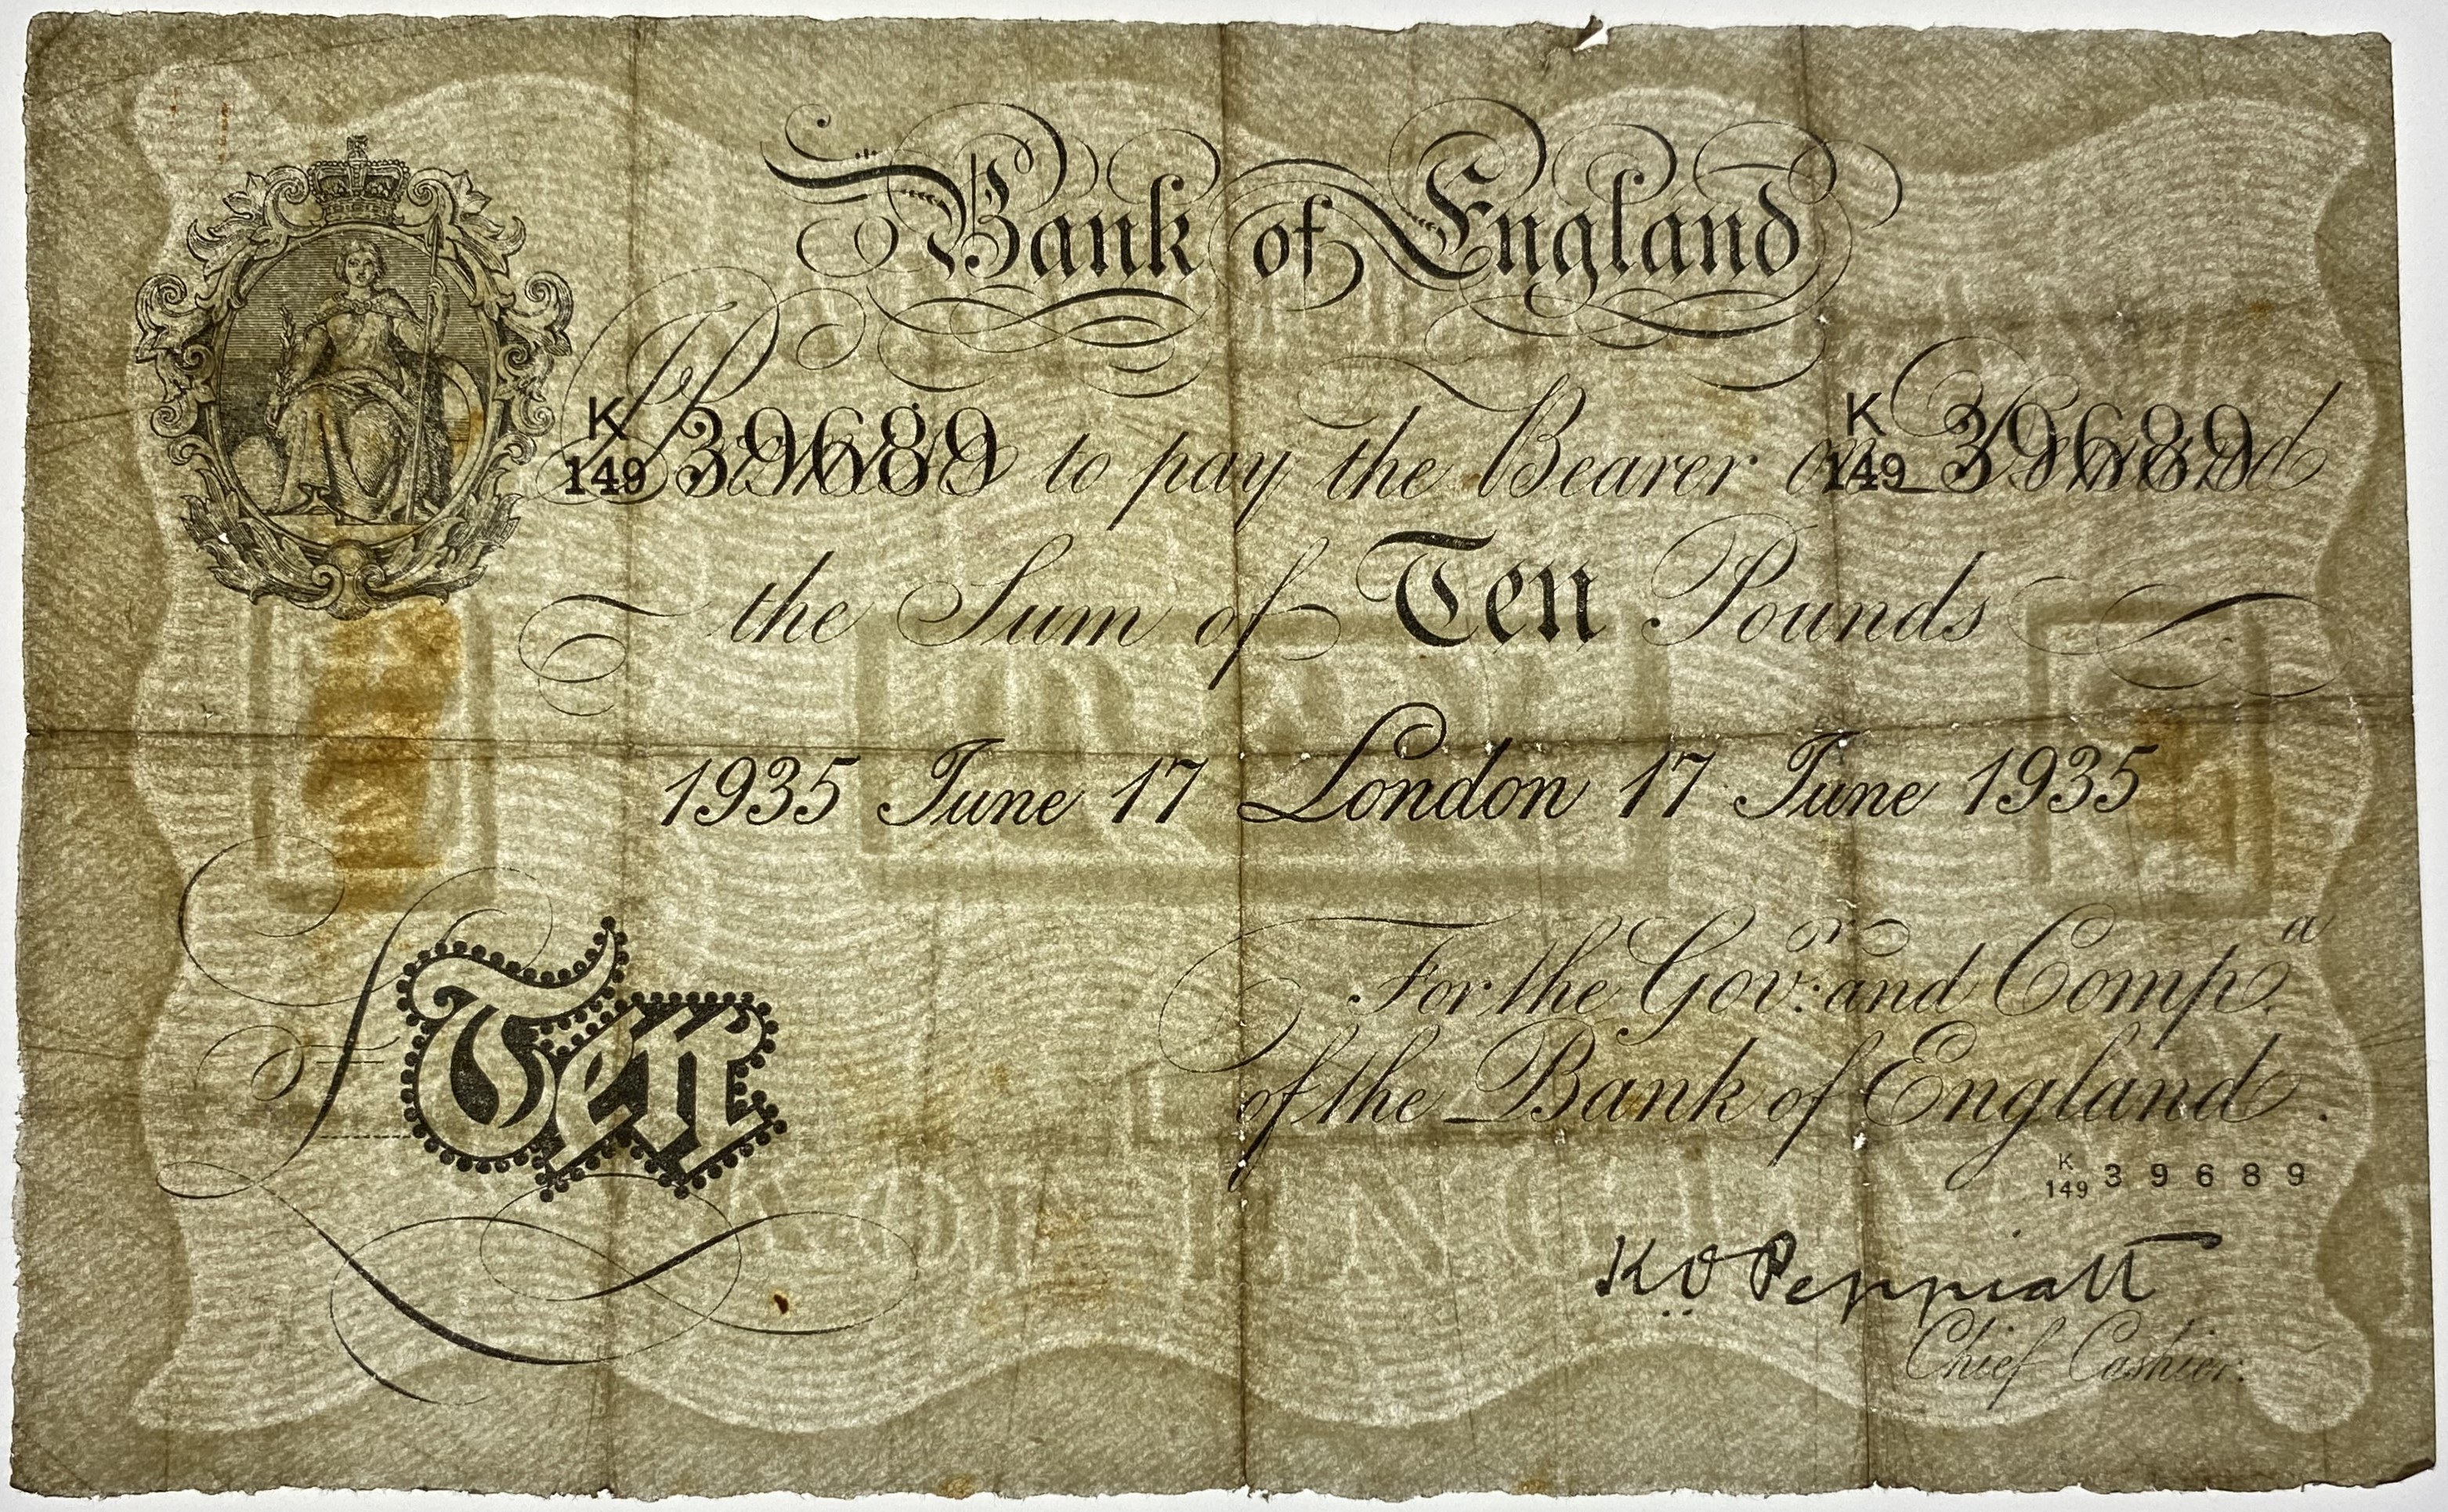 Bank of England
K 149 39689 I Promise to pay the Bearer on Demand K 149 39689
the Sum of Ten Pounds
1935 June 17 London 17 June 1935
For the Gov.r and Comp.a
of the Bank of England.
£ Ten
K 149 39689
K.O. Peppiatt
Chief Cashier.